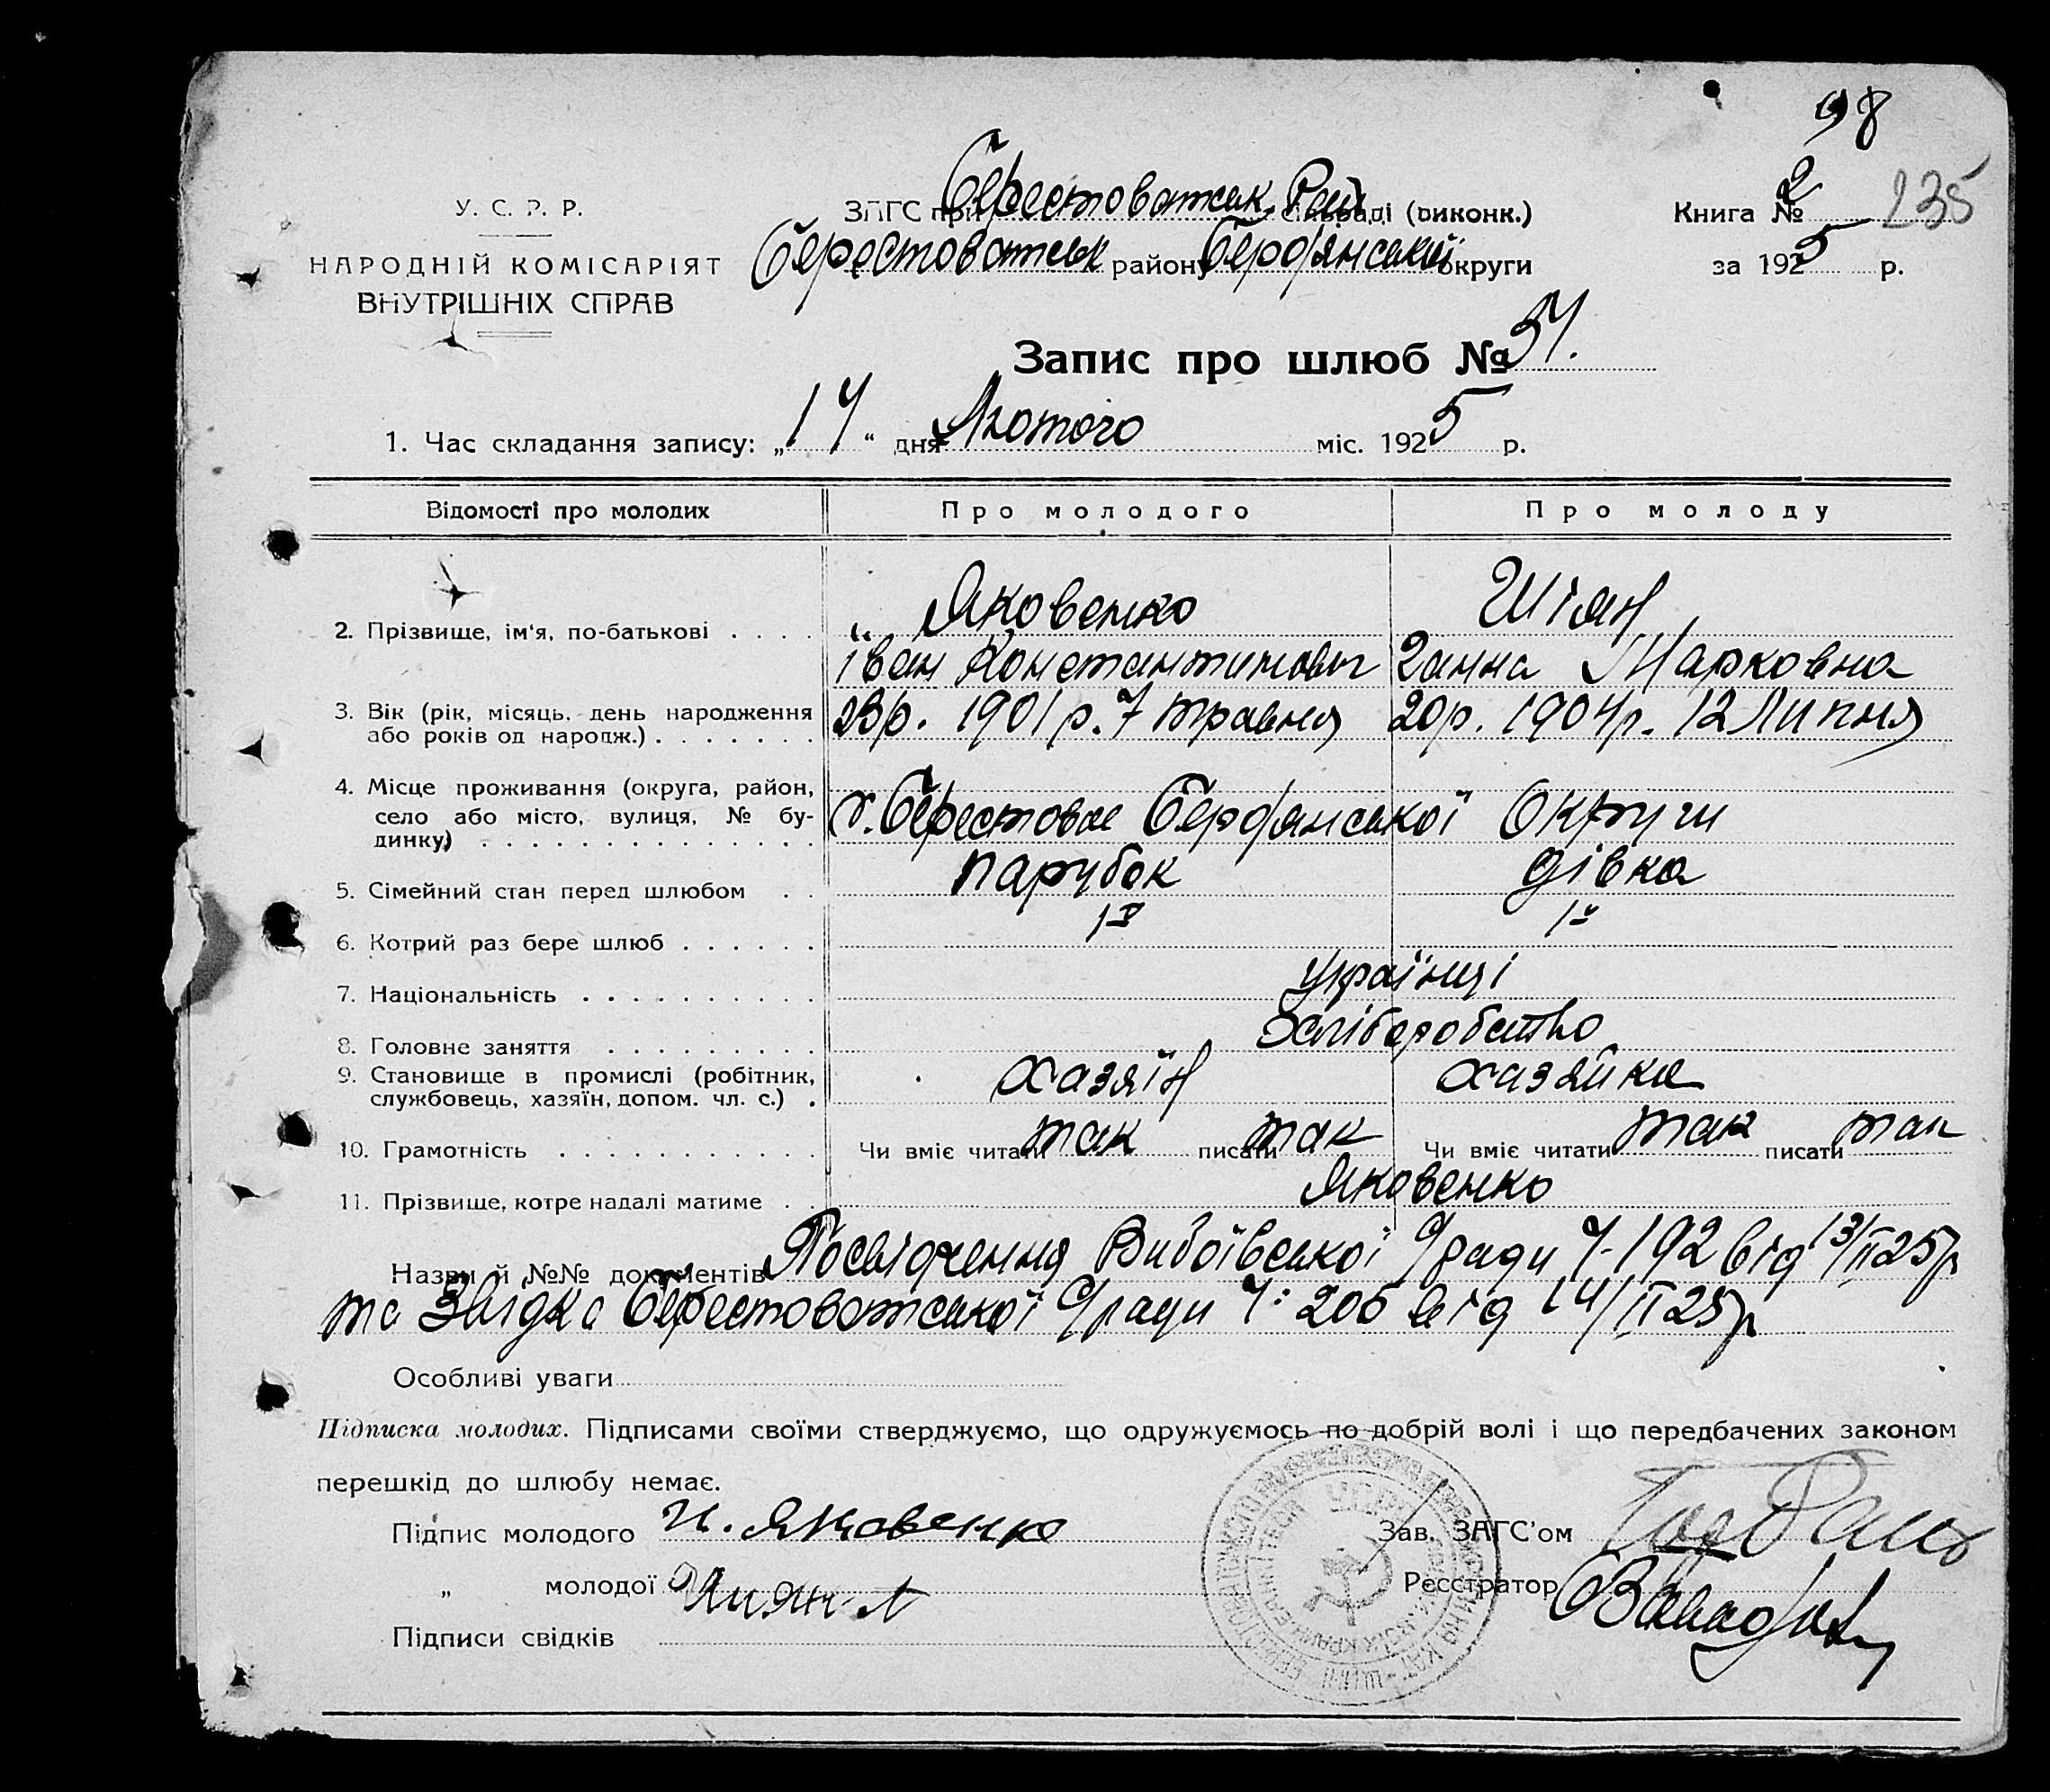 98
У. С. Р. Р.
ЗАГС при Берестоватськ Рай сільраді (виконк.)
Книга № 2 235
НАРОДНІЙ КОМІСАРІЯТ
Берестоватськ району Бердянської округи
за 1925 р.
ВНУТРІШНІХ СПРАВ
Запис про шлюб № 54.
1. Час складання запису: „14“ дня Лютого міс. 1925 р.
Відомості про молодих
Про молодого
Про молоду
Яковенко
Шіян
2. Прізвище, ім'я, по-батькові . . . .
Іван Константинович
Ганна Марковна
3. Вік (рік, місяць, день народження
або років од народж.) . . . . . . .
23р. 1901р. 7 травня
20р. 1904р. 12 Липня
4. Місце проживання (округа, район,
село або місто, вулиця, № бу-
динку) . . . . . . . . . . . . . . .
с. Берестовое Бердянської Округи
парубок
дівка
5. Сімейний стан перед шлюбом . .
1й
1й
6. Котрий раз бере шлюб . . . . . .
українці
7. Національність . . . . . . . . . .
хліборобство
8. Головне заняття . . . . . . . . .
9. Становище в промислі (робітник,
службовець, хазяїн, допом. чл. с.) .
хазяїн
хазяйка
10. Грамотність . . . . . . . . . . .
Чи вміє читати так писати так
Чи вміє читати так писати так
11. Прізвище, котре надалі матиме . .
Яковенко
Назви й №№ документів Посвідчення С/ради Ч-192 від 13/II 25р
та Звідка Берестоватської С/ради Ч: 206 від 14/II 25р
Особливі уваги
Підписка молодих. Підписами своїми стверджуємо, що одружуємось по добрій волі і що передбачених законом
перешкід до шлюбу немає.
Підпис молодого И. Яковенко
Зав. ЗАГС'ом
„ молодої Шиян
Реєстратор
Підписи свідків